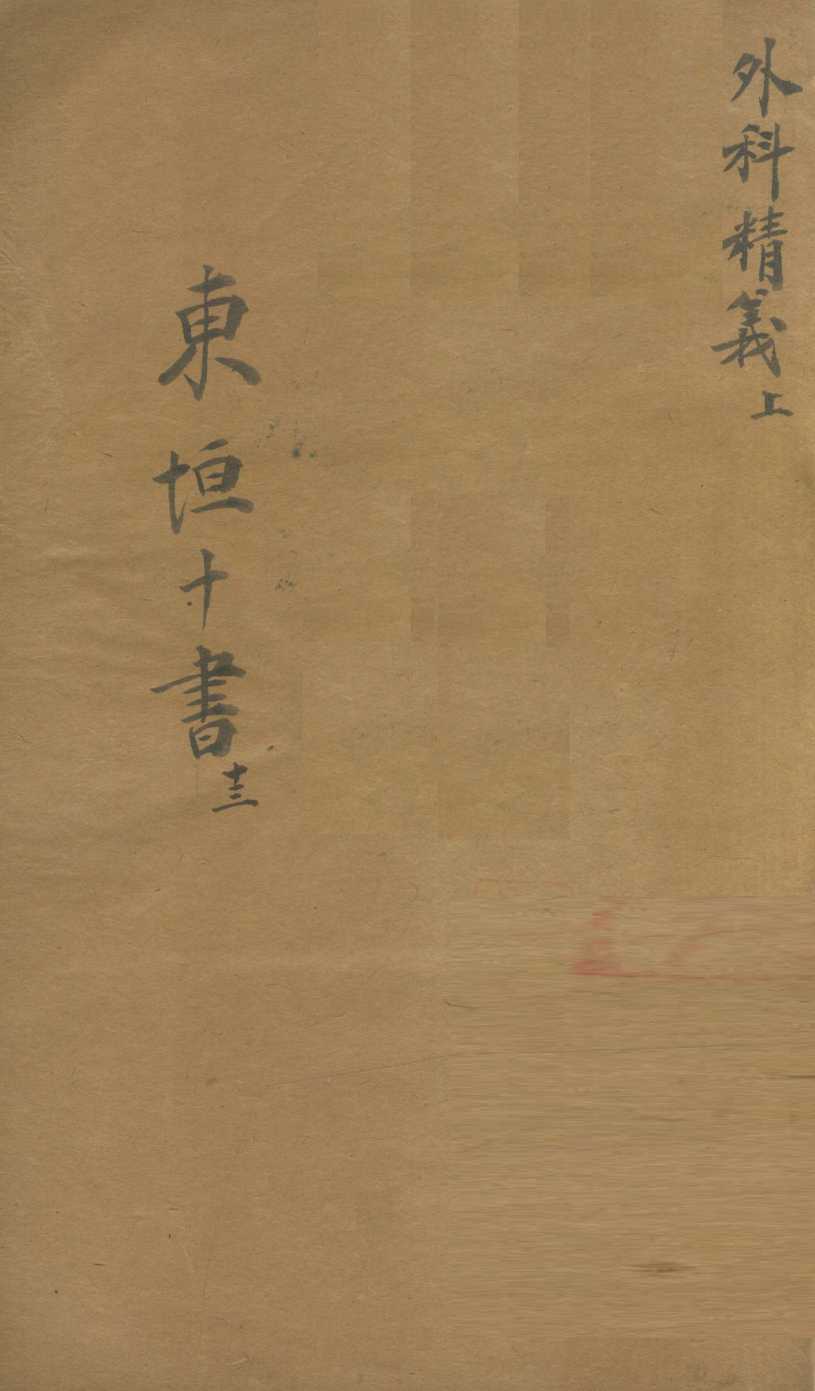 外科精義上
東垣十書十三